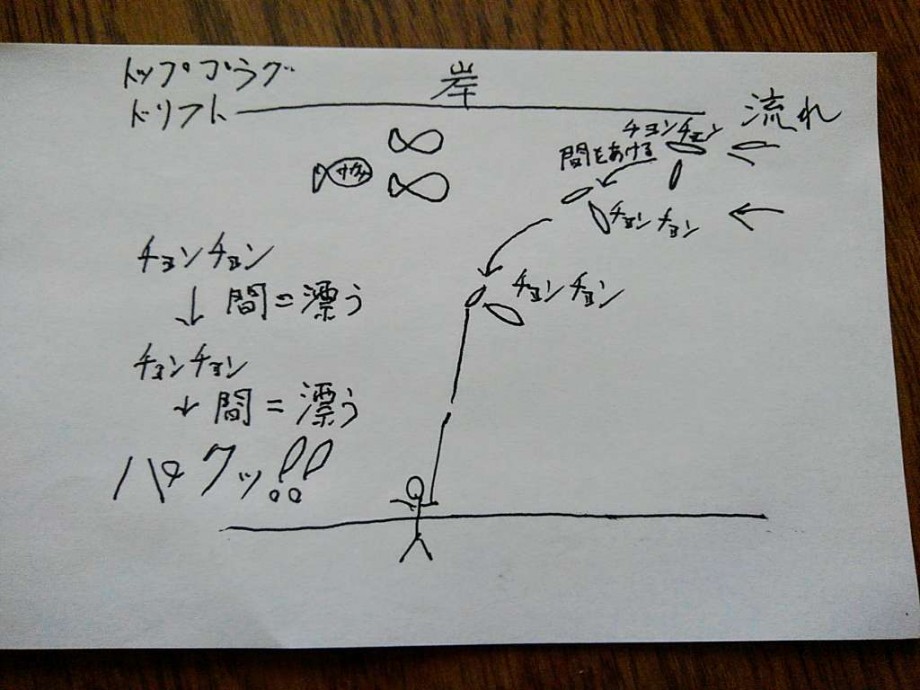 トッププラグ
ドリフト
岸
流れ
チョンチョン
間をあける
チョンチョン
チョンチョン
チョンチョン
↓ 間=漂う
チョンチョン
↓ 間=漂う
パクッ!!